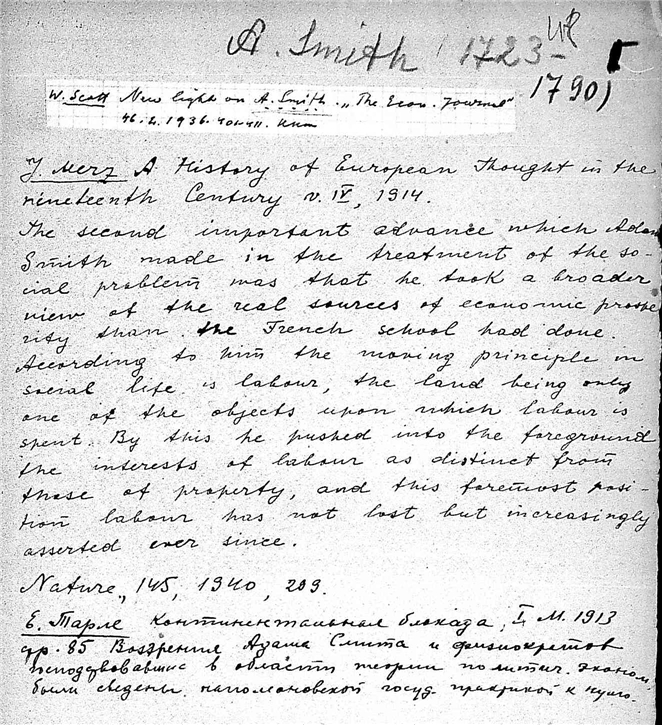 A. Smith (1723-
1790)
W. Scott New light on A. Smith. „The Econ. Journal"
46. 1936.
J. Merz A History of European Thought in the
nineteenth Century v. IV, 1914.
The second important advance which Adam
Smith made in the treatment of the so-
cial problem was that he took a broader
view of the real sources of economic prospe
rity than the French school had done.
According to him the moving principle in
social life is labour, the land being only
one of the objects upon which labour is
spent. By this he pushed into the foreground
the interests of labour as distinct from
those of property, and this foremost posi-
tion labour has not lost but increasingly
asserted ever since.
Nature, 145, 1940, 209.
Е. Тарле Континентальная блокада, I, М. 1913
стр. 85 Воззрения Адама Смита и физиократов
господствовавшие в области теории политич. эконом.
были сведены наполеоновской госуд. практикой к нулю.